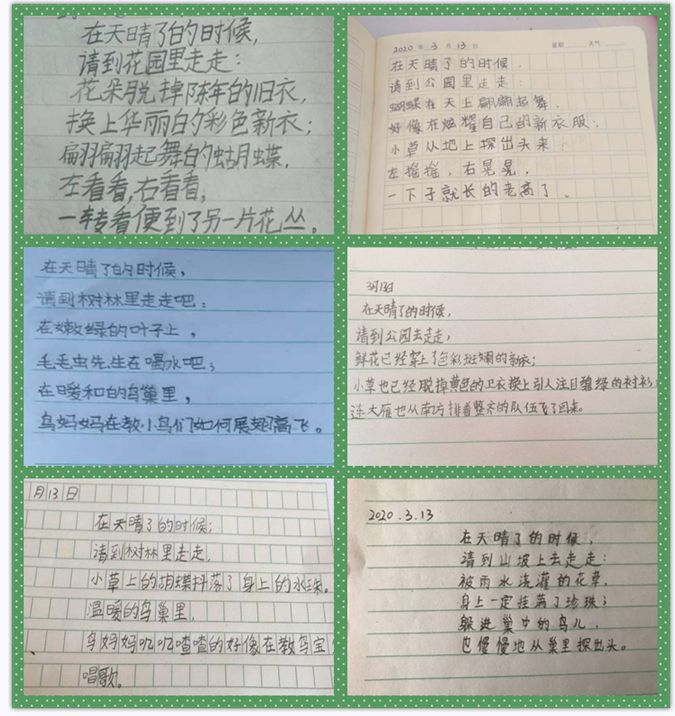 在天晴了的时候，
请到花园里走走：
花朵脱掉陈年的旧衣，
换上华丽的彩色新衣；
翩翩起舞的蝴蝶，
左看看，右看看，
一转看便到了另一片花丛。
2020年3月13日 星期 天气
在天晴了的时候，
请到公园里走走：
蝴蝶在天上翩翩起舞，
好像在炫耀自己的新衣服；
小草从地上探出头来，
左摇摇，右晃晃，
一下子就长的老高了。
在天晴了的时候，
请到树林里走走吧：
在嫩绿的叶子上，
毛毛虫先生在喝水吧；
在暖和的鸟巢里，
鸟妈妈在教小鸟们如何展翅高飞。
3月13日
在天晴了的时候，
请到公园去走走；
鲜花已经穿上了色彩斑斓的新衣；
小草也已经脱掉黄色的卫衣换上引人注目翠绿的衬衫；
连大雁也从南方排着整齐的队伍飞了回来。
月13日
在天晴了的时候；
请到树林里走走，
小草上的蝴蝶抖落了身上的水珠。
温暖的鸟巢里，
鸟妈妈叽叽喳喳的好像在教鸟宝
唱歌。
2020.3.13
在天晴了的时候，
请到山坡上去走走：
被雨水浇灌的花草，
身上一定挂满了珍珠；
躲进巢中的鸟儿，
也慢慢地从巢里探出头。